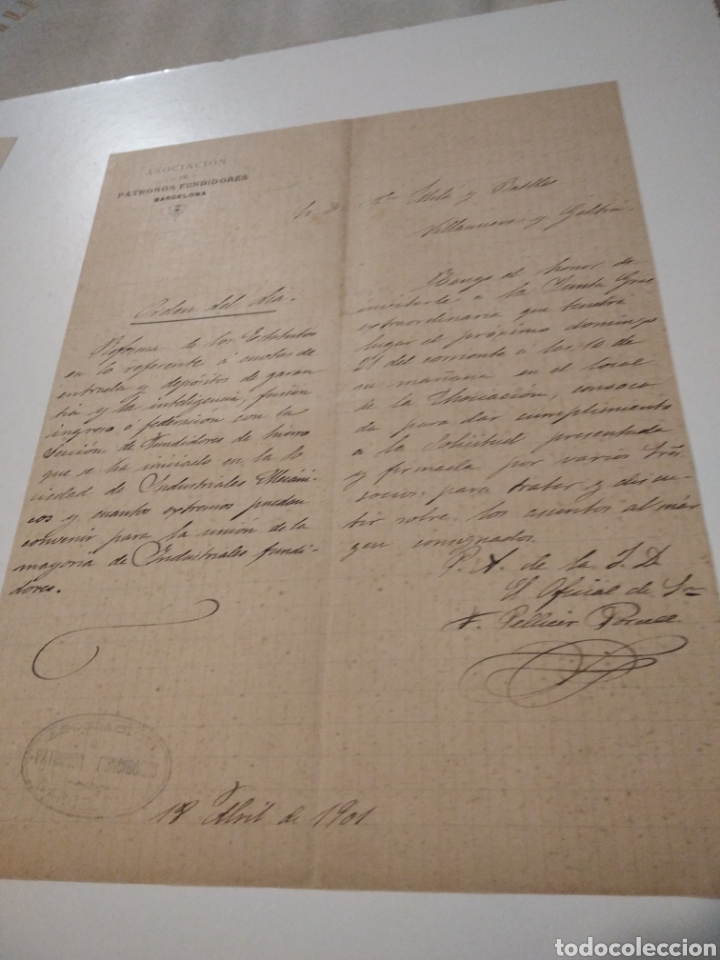 ASOCIACIÓN
DE
PATRONOS FUNDIDORES
BARCELONA
Villanueva y Geltrú.
Orden del dia.
Reforma de los Estatutos
en lo referente á cuotas de
entrada y depósitos de garan
tía y la inteligencia, fusión
ingreso ó federación con la
Sección de Fundidores de hierro
que se ha iniciado en la So
ciedad de Industriales Mecáni
cos y cuantos extremos puedan
convenir para la unión de la
mayoria de Industriales fundi-
dores.
Tengo el honor de
invitarle á la Junta Gral
extraordinaria que tendrá
lugar el próximo domingo
21 del corriente a las 10 de
su mañana en el local
de la Asociación, convoca
da para dar cumplimiento
a la solicitud presentada
y firmada por varios Sres
socios, para tratar y discu-
tir sobre los asuntos al már
gen consignados.
P. A. de la J. D.
El Oficial de Sria
F. Pellicer
18 Abril de 1901
todocoleccion